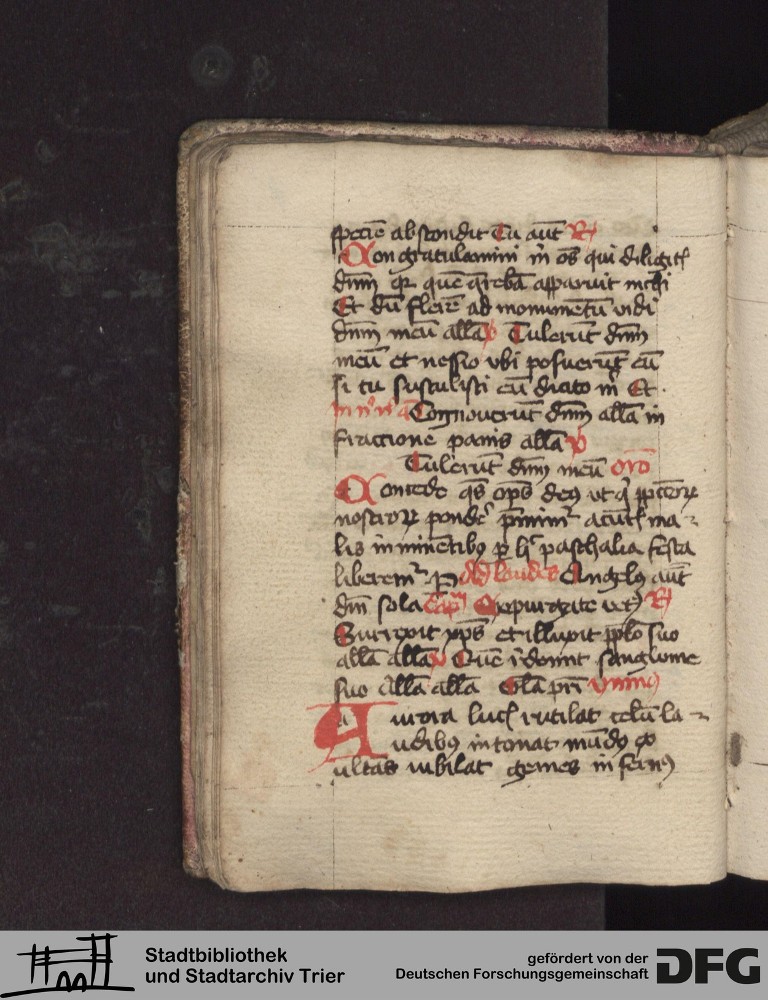 sp̄cie abscondit Tu aūt R
Congratulamini m̄ om̄s qui diligit
dn̄m qr quē q̄rebā apparuit michi
Et dū flerē ad monumētū vidi
dn̄m meū all̄a v Tulerūt dn̄m
meū et nescio vbi posuerūt eū
si tu sustulisti eū dicito m̄ Et
Cognouerūt dn̄m all̄a in
fractione panis all̄a v
Tulerūt dn̄m meū or̄o
Concede q̄s om̄ps deus vt q̄ pct̄orꝝ
nostrorꝝ pondē p̄mimur a cūctis ma
lis imminētibus p̄ hec paschalia festa
liberemur P Ad laudes Angelus aūt
dn̄i sola cap̄ Expurgate vetus R
Surrexit xp̄s et illuxit pp̄lo suo
all̄a all̄a v Quē redemit sanguine
suo all̄a all̄a Gl̄a pr̄i ymnus
Aurora lucis rutilat celū la
udibus intonat mūdus ex
ultas iubilat gemes infernus
Stadtbibliothek
und Stadtarchiv Trier
gefördert von der
Deutschen Forschungsgemeinschaft
DFG